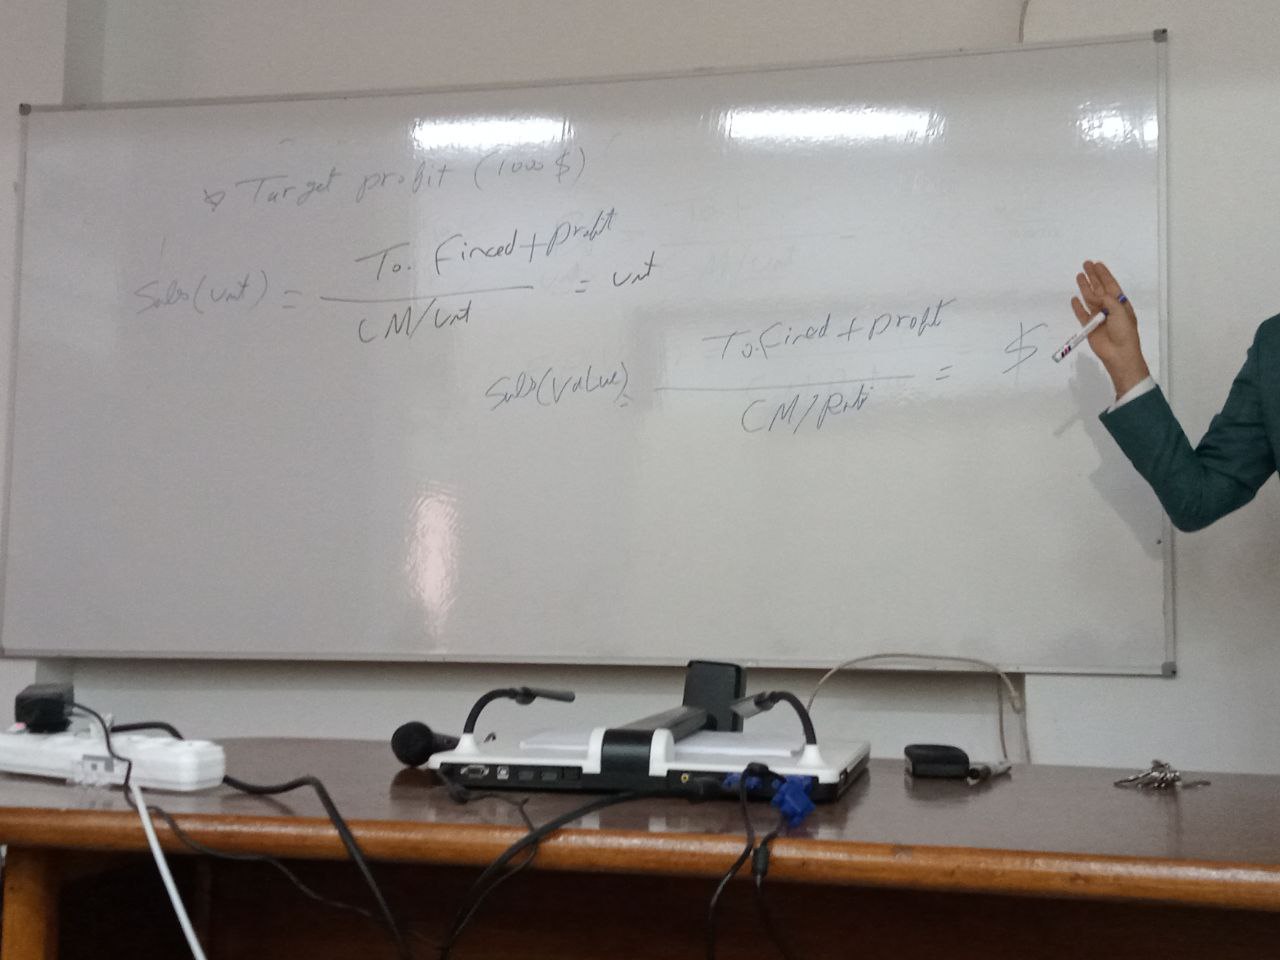 Target profit (1000 $)
Sales(unt) = To. Fixed + profit / CM/unt = unt
Sales(value) = To. fixed + profit / CM/Rati = $